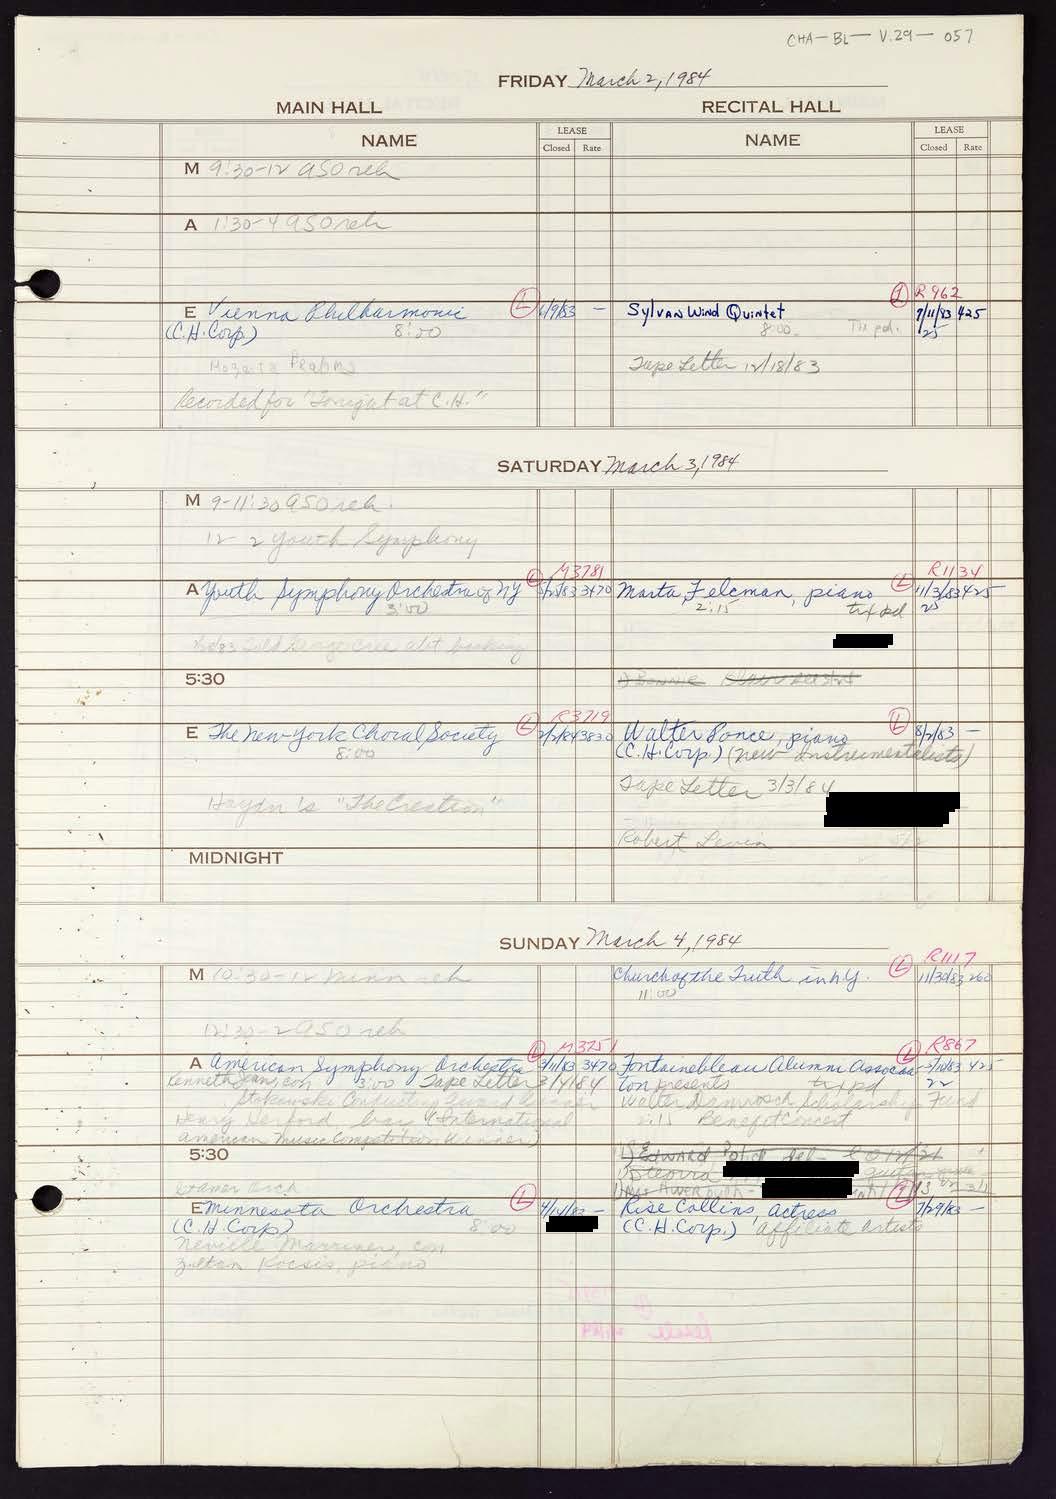 CHA-BL-V.29-057
FRIDAY March 2, 1984
MAIN HALL RECITAL HALL
NAME LEASE Closed Rate NAME LEASE Closed Rate
M 9:30-12 ASO reh
A 1:30-4 ASO reh
L 1 R962
E Vienna Philharmonic 6/9/83 - Sylvan Wind Quintet 7/11/83 425
(C.H. Corp) 8:00 8:00 Tix pd. 25
Mozart & Brahms Tape Letter 12/18/83
Recorded for "Tonight at C.H."
SATURDAY March 3, 1984
M 9-11:30 ASO reh.
12-2 Youth Symphony
L M3781 L R1134
A Youth Symphony Orchestra of NY 3470 Marta Felcman, piano 11/3/83 425
3:00 2:15 tix pd 25
5:30
L R3719 L
E The New York Choral Society 2/2/84 3830 Walter Ponce, piano 8/2/83 -
8:00 (C.H. Corp.) (New Instrumentalists)
Haydn's "The Creation" Tape Letter 3/3/84
Robert Levin
MIDNIGHT
SUNDAY March 4, 1984
L R1117
M 10:30-12 Minn reh Church of the Truth in N.Y. 11/30/83 260
11:00
12:30-2 ASO reh
L M3251 L R867
A American Symphony Orchestra 3/11/83 3470 Fontainebleau Alumni Associa- 425
Kenneth Jean, con 3:00 Tape Letter 3/4/84 tion presents tix pd 22
Stokowski Conducting Award Winner Walter Damrosch Scholarship Fund
Henry Herford bar (International 2:15 Benefit Concert
American Music Competition Winner)
5:30
L
E Minnesota Orchestra - Rise Collins, actress 7/29/83 -
(C.H. Corp) 8:00 (C.H. Corp.) 'Affiliate Artists
Neville Marriner, con
Zoltan Kocsis, piano